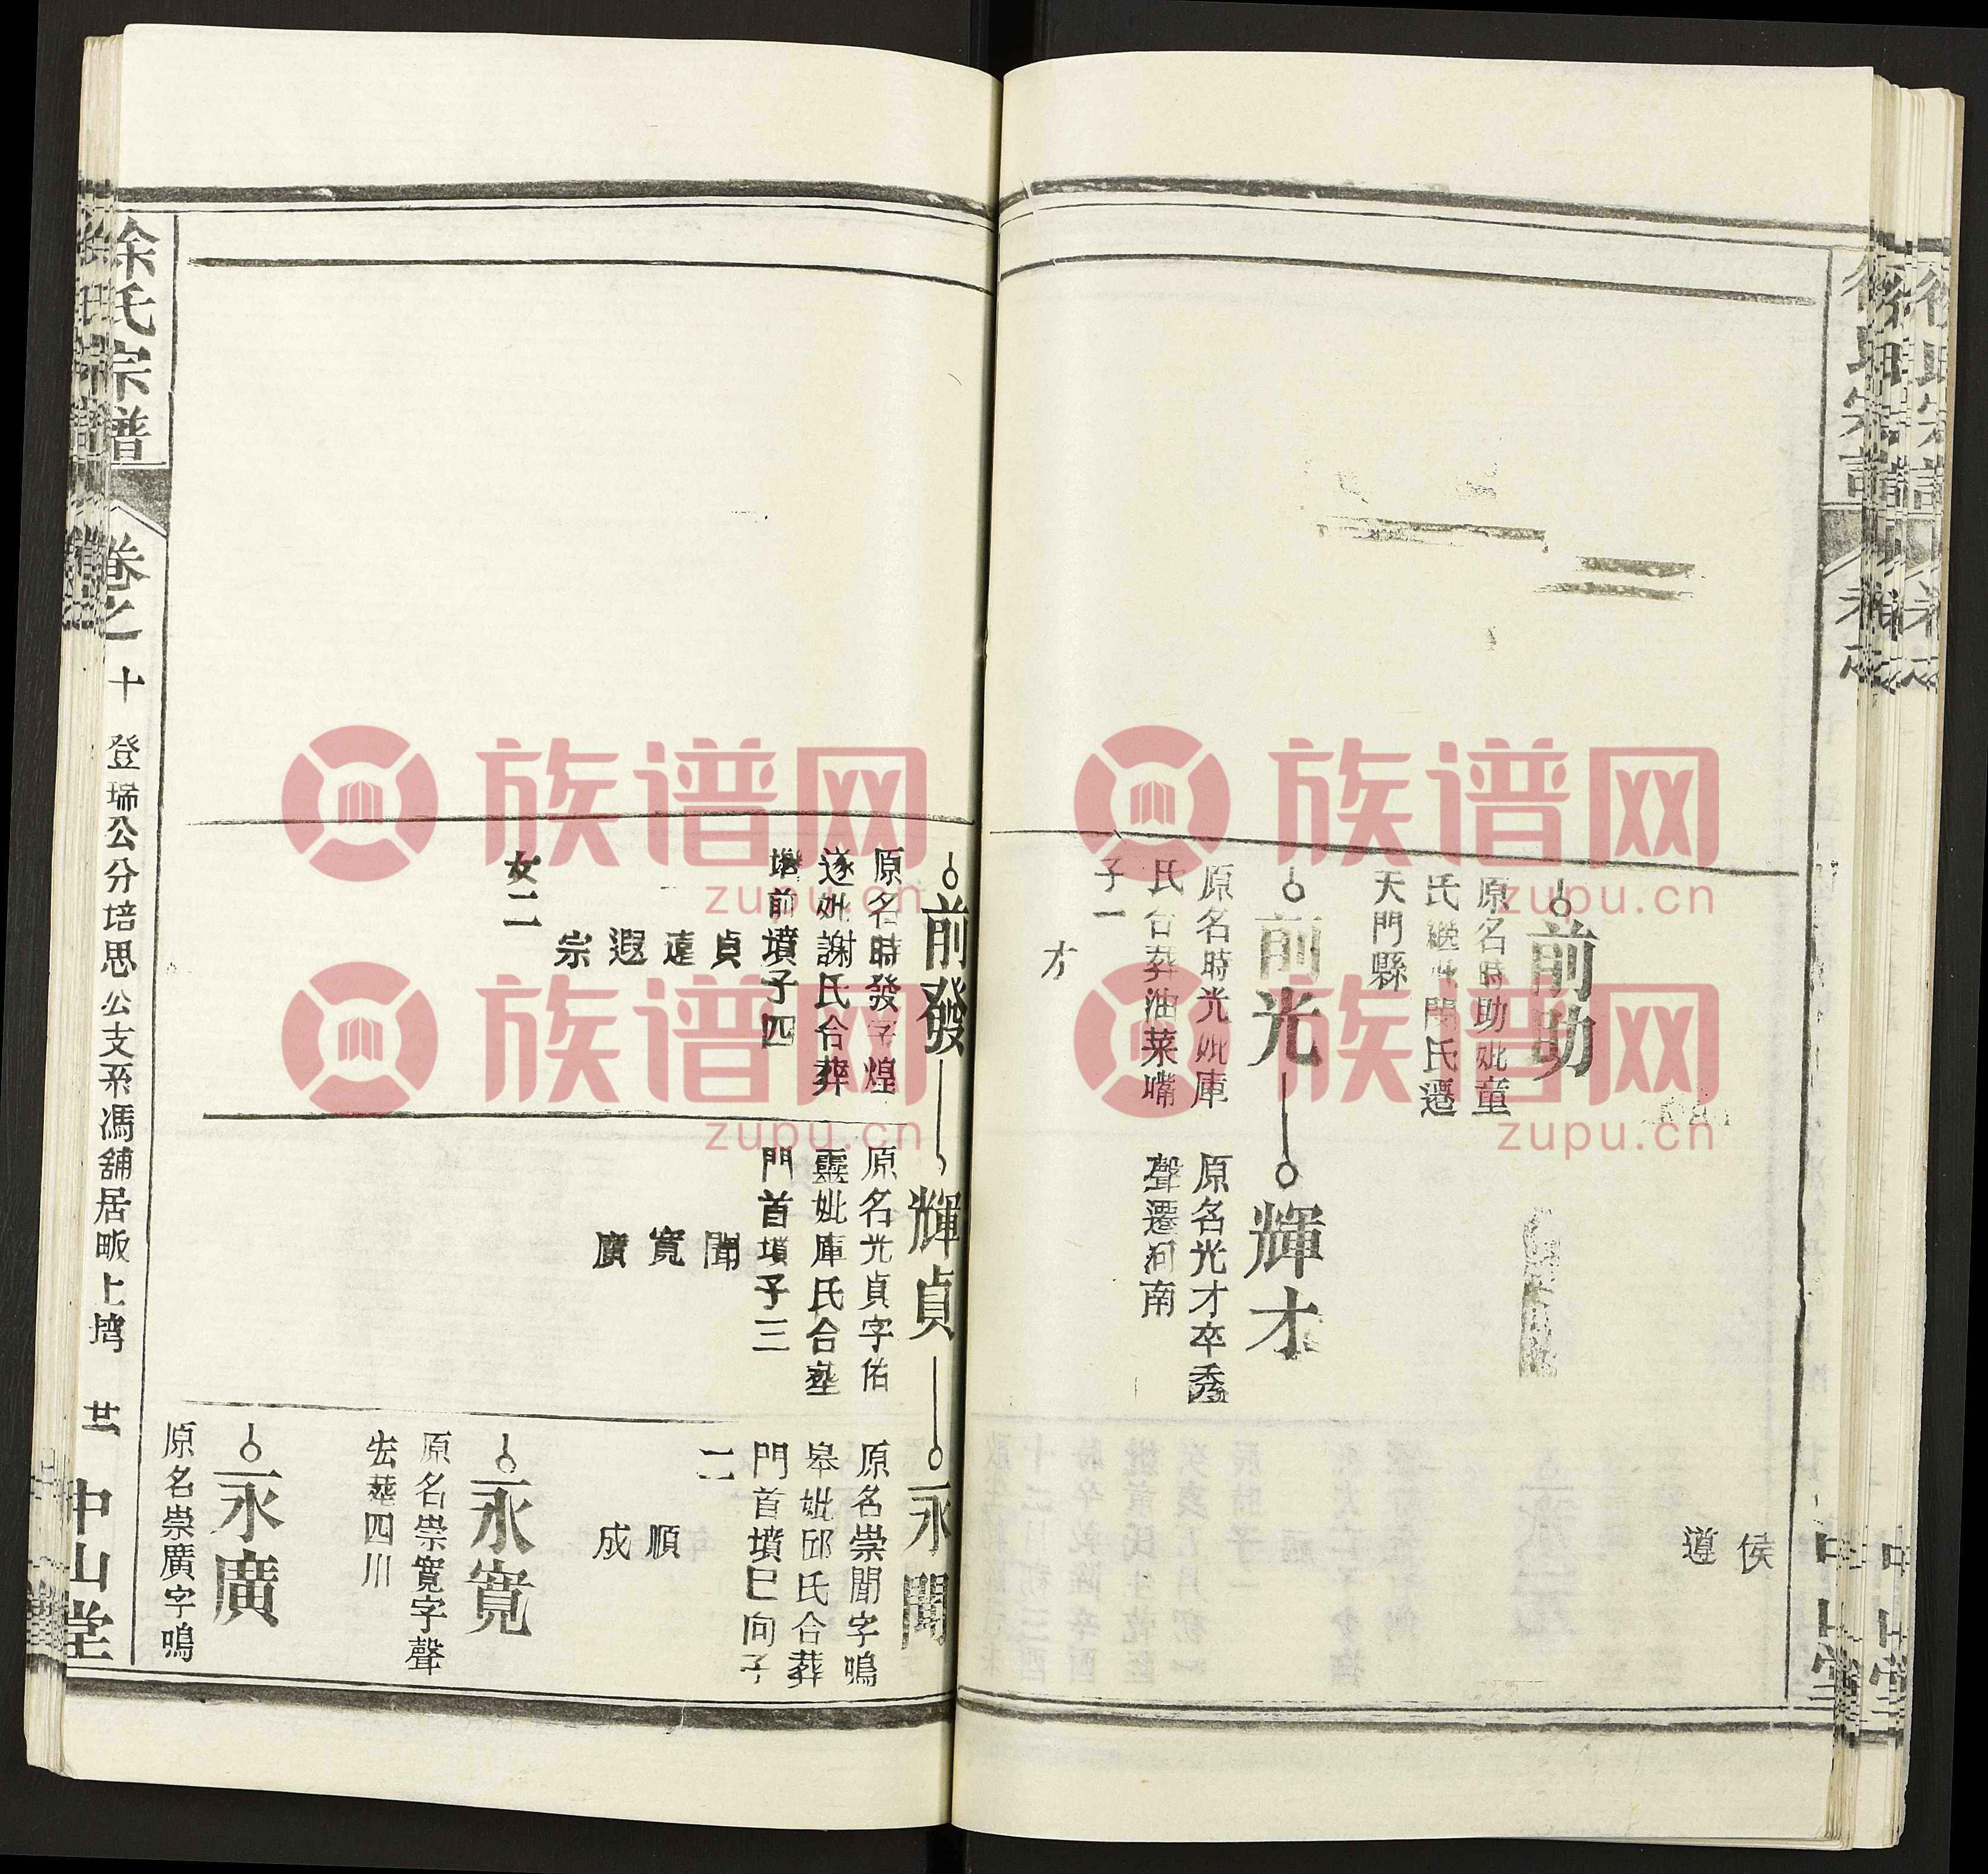 侯
遵
前助
原名時助妣童
氏繼妣閔氏遷
天門縣
前光
原名時光妣庫
氏合葬油菜嘴
子一
才
輝才
原名光才卒秀
聲遷河南
前發
原名時發字煌
遂妣謝氏合葬
前墳子四
貞
遠
遐
宗
女二
輝貞
原名光貞字佑
靈妣庫氏合塟
門首墳子三
聞
寬
廣
永聞
原名崇聞字鳴
皋妣邱氏合葬
門首墳巳向子
二
順
成
永寬
原名崇寬字聲
宏葬四川
永廣
原名崇廣字鳴
徐氏宗譜
卷之十
登瑞公分培思公支系馮舖居畈上塆
廿
中山堂
族谱网
zupu.cn
族谱网
zupu.cn
族谱网
zupu.cn
族谱网
zupu.cn